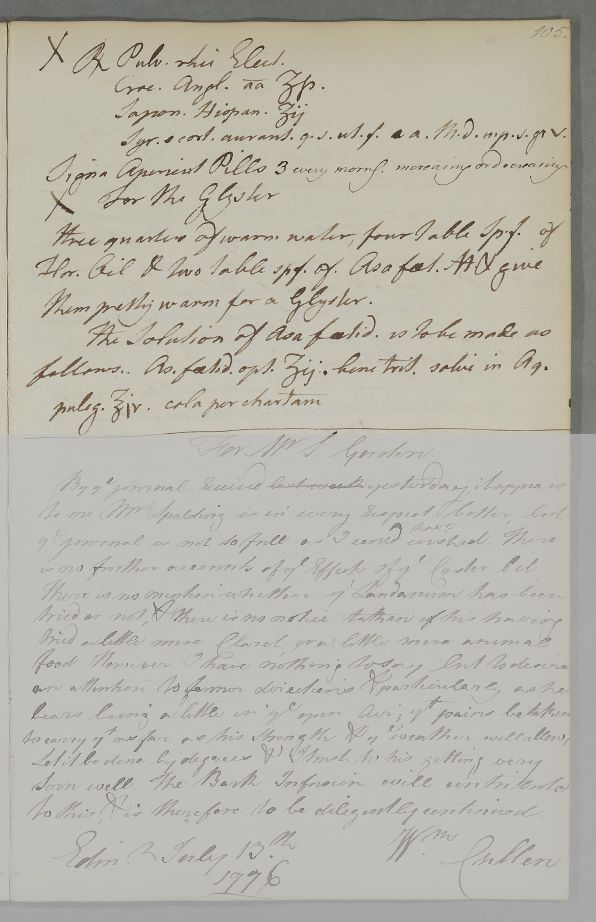 105.
X ℞ Pulv. rhei Elect.
Croc. Angl. aa ʒſs.
Sapon. Hispan. ʒij
Syr. e cort. aurant. q. s. ut. f. a a. M. d. in p. s. gr v.
Signa Aperient Pills 3 every morng. increasing or decreasing
X For the Glyster
three quarters of warm water, four table Sp.f. of
Flor. Oil & two table spf. of. Asafœt. M & give
them pretty warm for a Glyster.
the Solution of Asa fœtid. is to be made as
follows.. As. fœtid. opt. ʒij. bene trit. solve in Aq.
puleg. ℥iv. cola per chartam
For Mr S. Gordon
By ye journal received last week yesterday, it appears
to me Mr Spalding is in every respect better, but
ye journal is not so full as I could have wished. There
is no further accounts of ye Effects of ye Castor Oil
There is no mention whether ye Laudanum has been
tried or not, & there is no notice taken of his having
tried a little more Claret, or a little more animal
food However I have nothing to say but to desire
an attention to former directions & particularly as he
bears being a little in ye open Air, yt pains be taken
to carry yt as far as his strength & ye weather will allow,
Let it be done by degrees & I trust to his getting very
soon well. The Bark Infusion will contribute
to this, & is therefore to be diligently continued.
Edinr July 13.th Wm
1776 Cullen